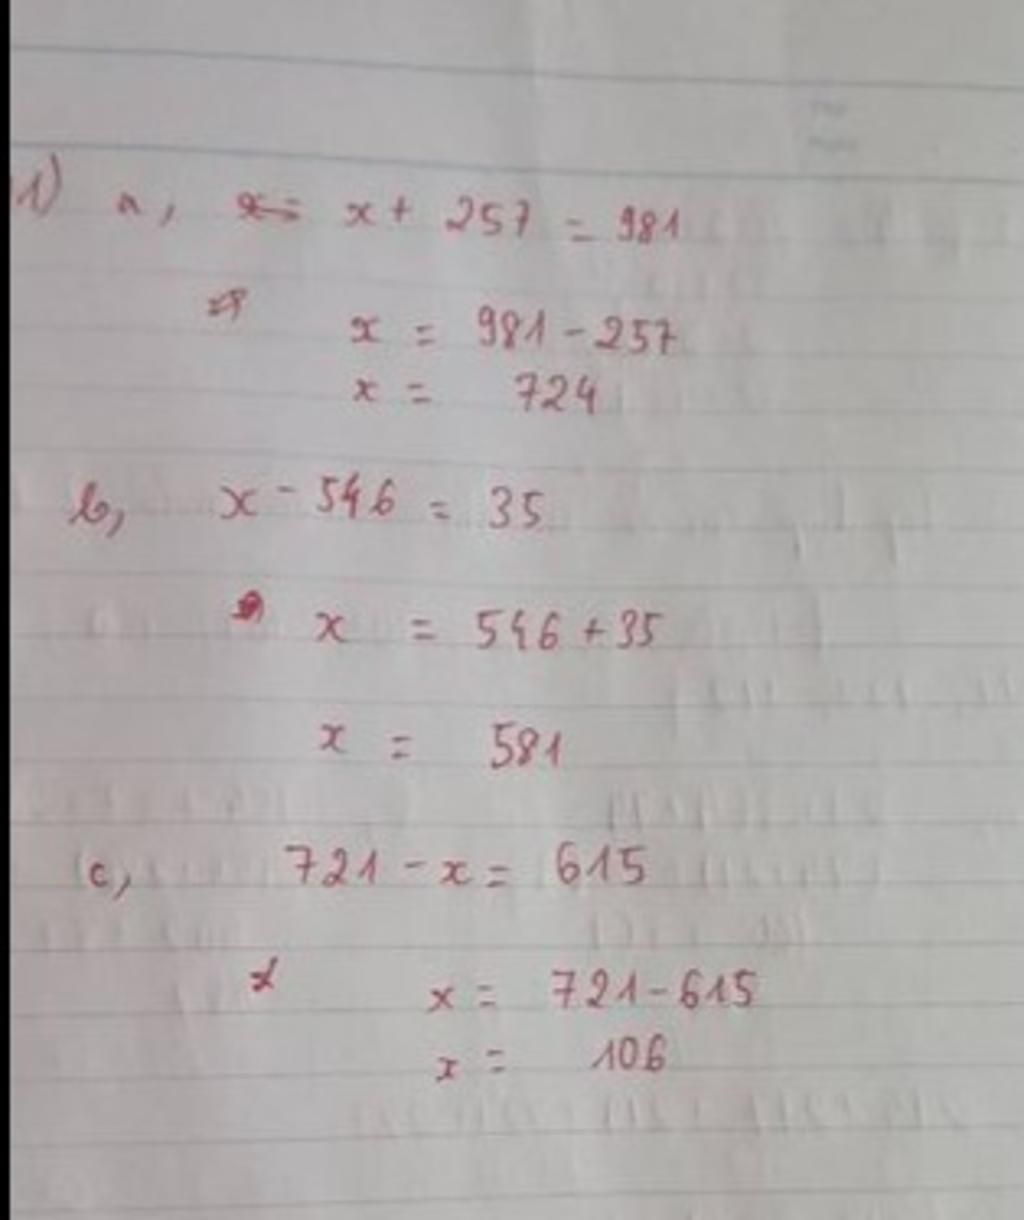 1) a, x + 257 = 981
x = 981 - 257
x = 724
b, x - 546 = 35
x = 546 + 35
x = 581
c, 721 - x = 615
x = 721 - 615
x = 106